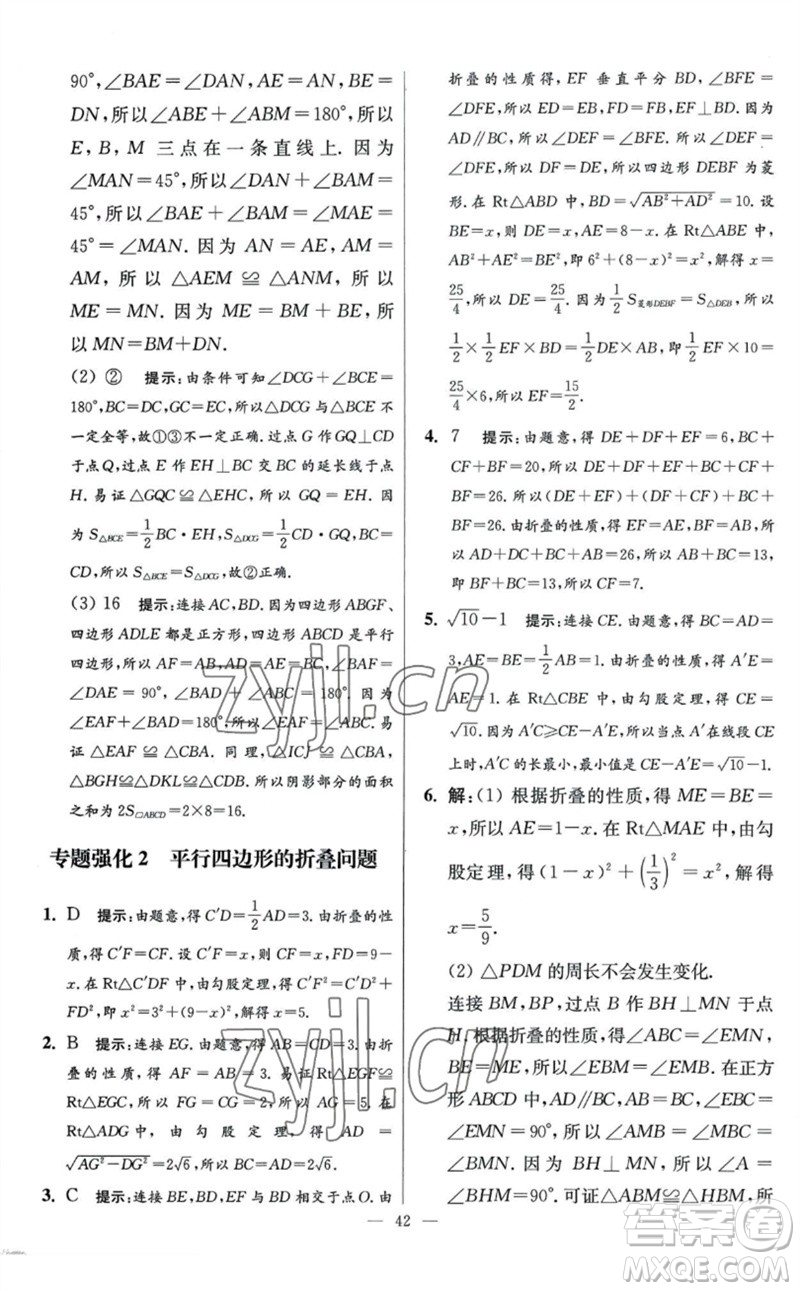 90°,∠BAE=∠DAN,AE=AN,BE=
DN,所以∠ABE+∠ABM=180°,所以
E,B,M 三点在一条直线上. 因为
∠MAN=45°,所以∠DAN+∠BAM=
45°,所以∠BAE+∠BAM=∠MAE=
45°=∠MAN. 因为 AN=AE,AM=
AM,所以△AEM≌△ANM,所以
ME=MN. 因为 ME=BM+BE,所
以 MN=BM+DN.
(2) ② 提示:由条件可知∠DCG+∠BCE=
180°,BC=DC,GC=EC,所以△DCG与△BCE不
一定全等,故①③不一定正确. 过点 G 作 GQ⊥CD
于点 Q,过点 E 作 EH⊥BC 交 BC 的延长线于点
H. 易证△GQC≌△EHC,所以 GQ=EH. 因
为 S△BCE=1/2BC·EH,S△DCG=1/2CD·GQ,BC=
CD,所以 S△BCE=S△DCG,故②正确.
(3) 16 提示:连接AC,BD. 因为四边形 ABGF、
四边形 ADLE 都是正方形,四边形 ABCD 是平行
四边形,所以 AF=AB,AE=AD=BC,∠BAF=
∠DAE=90°,∠BAD+∠ABC=180°. 因为
∠EAF+∠BAD=180°,所以∠EAF=∠ABC. 易
证△EAF≌△CBA. 同理,△ICJ≌△CBA,
△BGH≌△DKL≌△DAB,所以阴影部分的面积
之和为 2S□ABCD=2×8=16.
专题强化2 平行四边形的折叠问题
1. D 提示:由题意,得 C′D=1/2AD=3. 由折叠的性
质,得 C′F=CF. 设 C′F=x,则 CF=x,FD=9-
x. 在 Rt△C′DF 中,由勾股定理,得 C′F²=C′D²+
FD²,即 x²=3²+(9-x)²,解得 x=5.
2. B 提示:连接EG. 由题意,得 AB=CD=3. 由折
叠的性质,得 AF=AB=3,BE=EF. 易证
Rt△EGF≌Rt△EGC,所以 FG=CG=2,所以 AG=5. 在
Rt△ADG 中,由勾股定理,得 AD=
√AG²-DG²=2√6,所以 BC=AD=2√6.
3. C 提示:连接BE,BD,EF 与 BD 相交于点 O. 由
折叠的性质得,EF 垂直平分 BD,∠BFE=
∠DFE,所以 ED=EB,FD=FB,EF⊥BD. 因为
AD∥BC,所以∠DEF=∠BFE,所以∠DEF=
∠DFE,所以 DF=DE,所以四边形 DEBF 为菱
形. 在 Rt△ABD 中,BD=√AB²+AD²=10. 设
BE=x,则 DE=x,AE=8-x. 在 Rt△ABE 中,
AB²+AE²=BE²,即 6²+(8-x)²=x²,解得 x=
25/4,所以 DE=25/4. 因为 1/2S菱形DEBF=S△DEB,所以
1/2×1/2EF×BD=DE×1/2AB,即 1/2EF×10=
25/4×6,所以 EF=15/2.
4. 7 提示:由题意,得 DE+DF+EF=6,BC+
CF+BF=20,所以 DE+DF+EF+BC+CF+
BF=26. 所以(DE+EF)+(DF+CF)+BC+
BF=26. 由折叠的性质,得 EF=AE,BF=AB,所
以 AD+DC+BC+AB=26,所以 AB+BC=13,
即 BF+BC=13,所以 CF=7.
5. √10-1 提示:连接 CE. 由题意,得 BC=AD=
3,AE=BE=1/2AB=1. 由折叠的性质,得 A′E=
AE=1. 在 Rt△CBE 中,由勾股定理,得 CE=
√10. 因为 A′C≥CE-A′E,所以当点 A′在线段 CE
上时,A′C 的长最小,最小值是 CE-A′E=√10-1.
6. 解:(1) 根据折叠的性质,得 ME=BE=
x,所以 AE=1-x. 在 Rt△MAE 中,由勾
股定理,得(1-x)²+(1/3)²=x²,解得
x=5/9.
(2) △PDM 的周长不会发生变化.
连接 BM,BP,过点 B 作 BH⊥MN 于点
H. 根据折叠的性质,得∠ABC=∠EMN,
BE=ME,所以∠EBM=∠EMB. 在正方
形 ABCD 中,AD∥BC,∠EBC=
∠EMN=90°,所以∠AMB=∠MBC=
∠BMN. 因为 BH⊥MN,所以∠A=
∠BHM=90°. 可证△ABM≌△HBM,所
— 42 —
zyjl.cn
zyjl.cn
答案圈
MXQE.COM